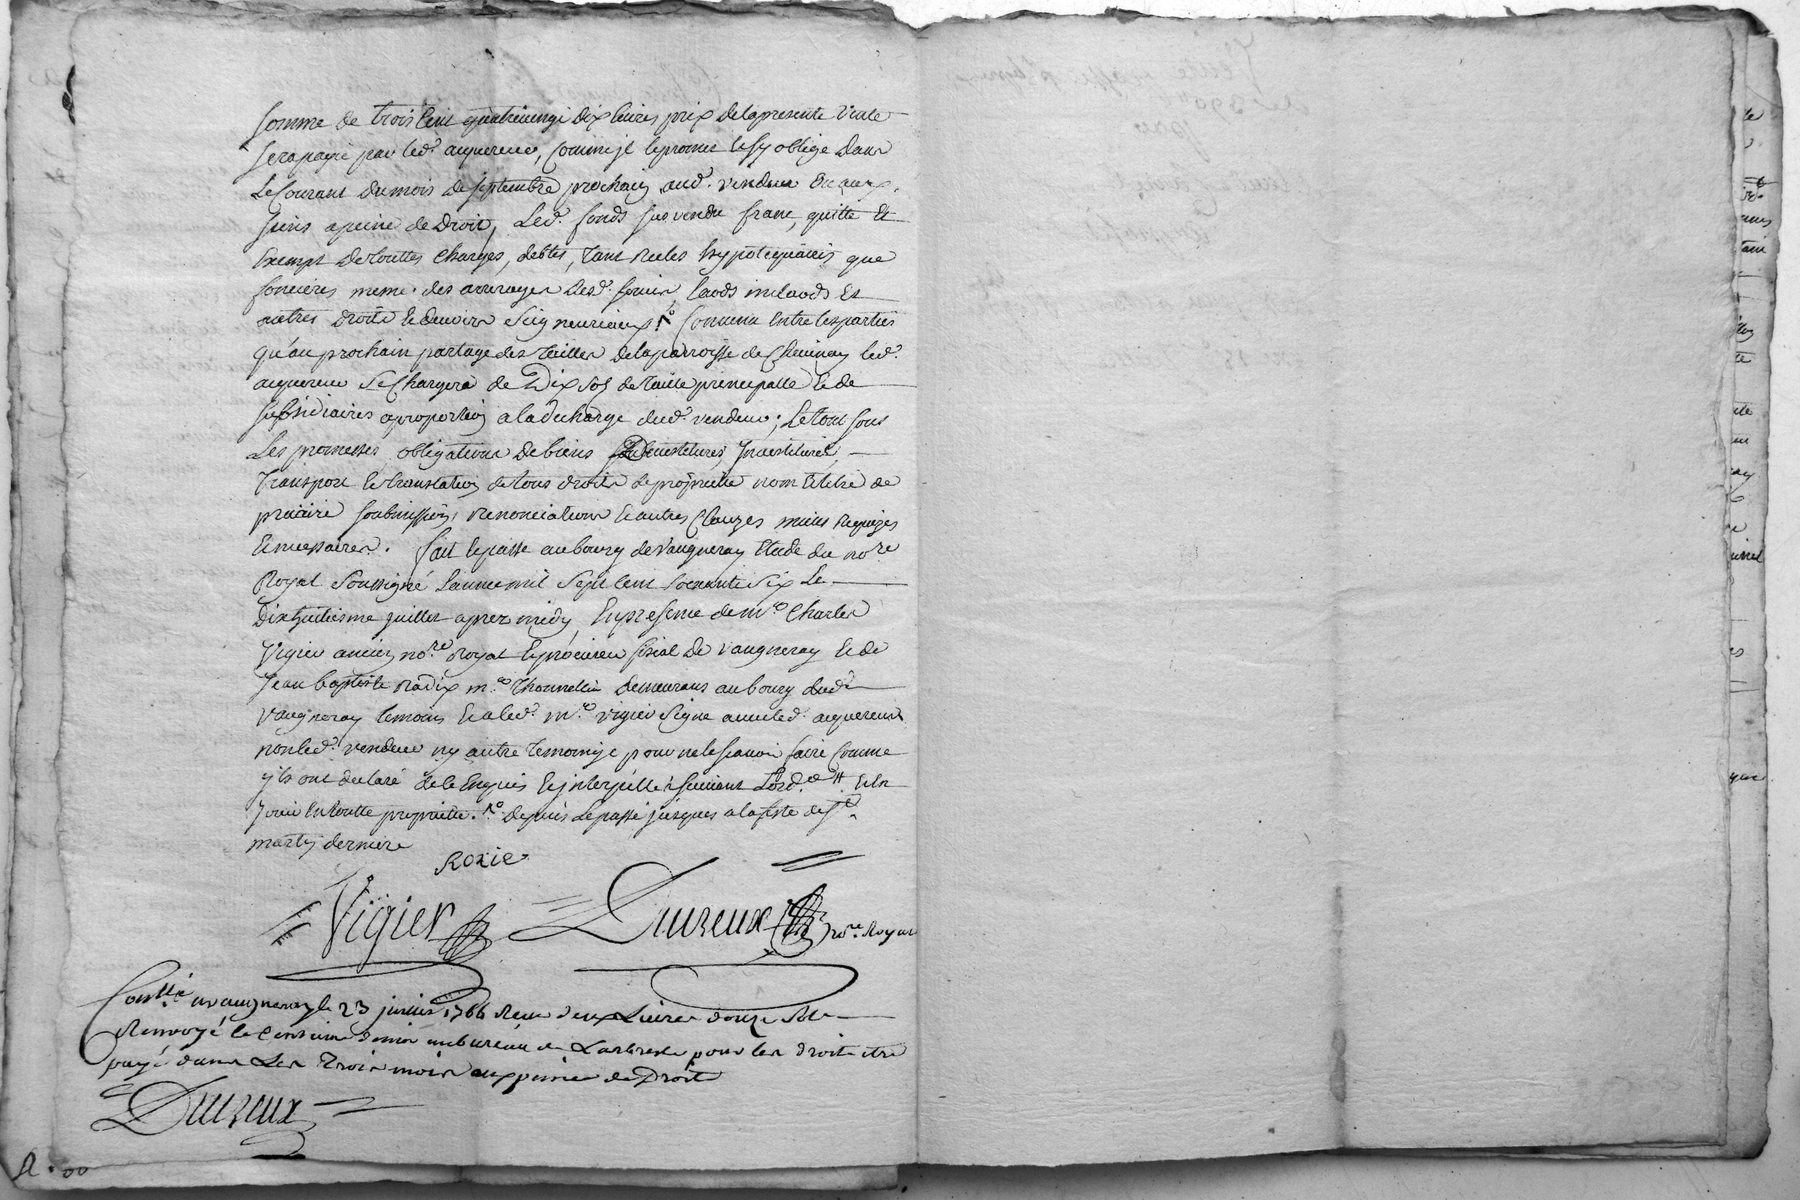 somme de trois cent quatrevingt dix livres prix de la presente vente
sera payé par led. acquereur, comme il le promet et s'y oblige dans
le courant du mois de septembre prochain aud. vendeur ou aux
siens a peine de droit, led. fonds sus vendu franc, quitte et
exempt de touttes charges, debtes, tant reeles hypotequaires que
foncieres meme des arrerages desd. servis, laods milaods et
autres droits et devoirs seigneuriaux. Convenu entre les parties
qu'au prochain partage des tailles de la parroisse de Chevinay led.
acquereur se chargera de dix sol de taille principalle et de
subsidiaires a proportion a la decharge dud. vendeur; le tout sous
les promesses, obligations de biens devestitures, investitures,
transport et translation de tous droits de propriette nom et titre de
precaire soubmissions, renonciations et autres clauzes mieux requizes
et necessaires. fait et passé au bourg de vaugneray etude du no.re
Royal soussigné l'an mil sept cent soixante six le
dix huitieme juillet aprez midy, en presence de m.e Charles
Vigier ancien no.re Royal et procureur fiscal de vaugneray et de
Jean baptiste Radix m.e thonnelier demeurans au bourg dud.
vaugneray temoins et a led. m.e vigier signé avec led. acquereur
non led. vendeur ny autre temoin pour ne le scavoir faire comme
ils ont declaré de ce enquis et interpellé suivant l'ord.ce et en
jouir en toutte propriette. depuis le passé jusques a la feste de S.t
martin derniere
Roxie
Vigier Dureux no.re Royal
Con.llé a vaugneray le 23 juillet 1766 Reçu deux Livres douze sols
Renvoyé le centieme denier au bureau de Larbresle pour les droits etre
payé dans Les trois mois aux peines de Droit
Dureux